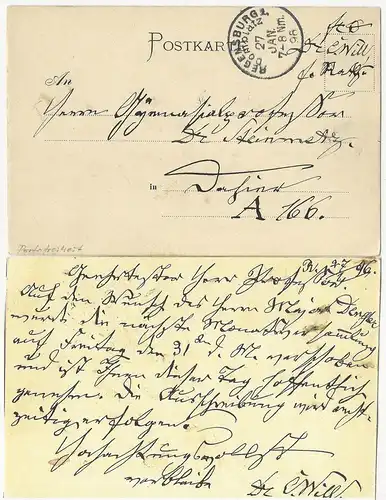 POSTKAR
REGENSBURG 2.
Domplatz
27
JAN.
7-8 Nm.
96
Dr C Will
An
Herrn Gymnasialprofessor
Dr. Steinmetz.
in
Dahier
A 166.
R. 27/1 96.
Geehrtester Herr Professor
Auf den Wunsch des Herrn Major Dengler
werde die nächste Monatsversammlung
auf Freitag den 31 d. M. verschoben
und ist Ihnen dieser Tag hoffentlich
genehm. Die Ausschreibung wird recht-
zeitig erfolgen.
Hochachtungsvollst
verbleibe
Dr C Will